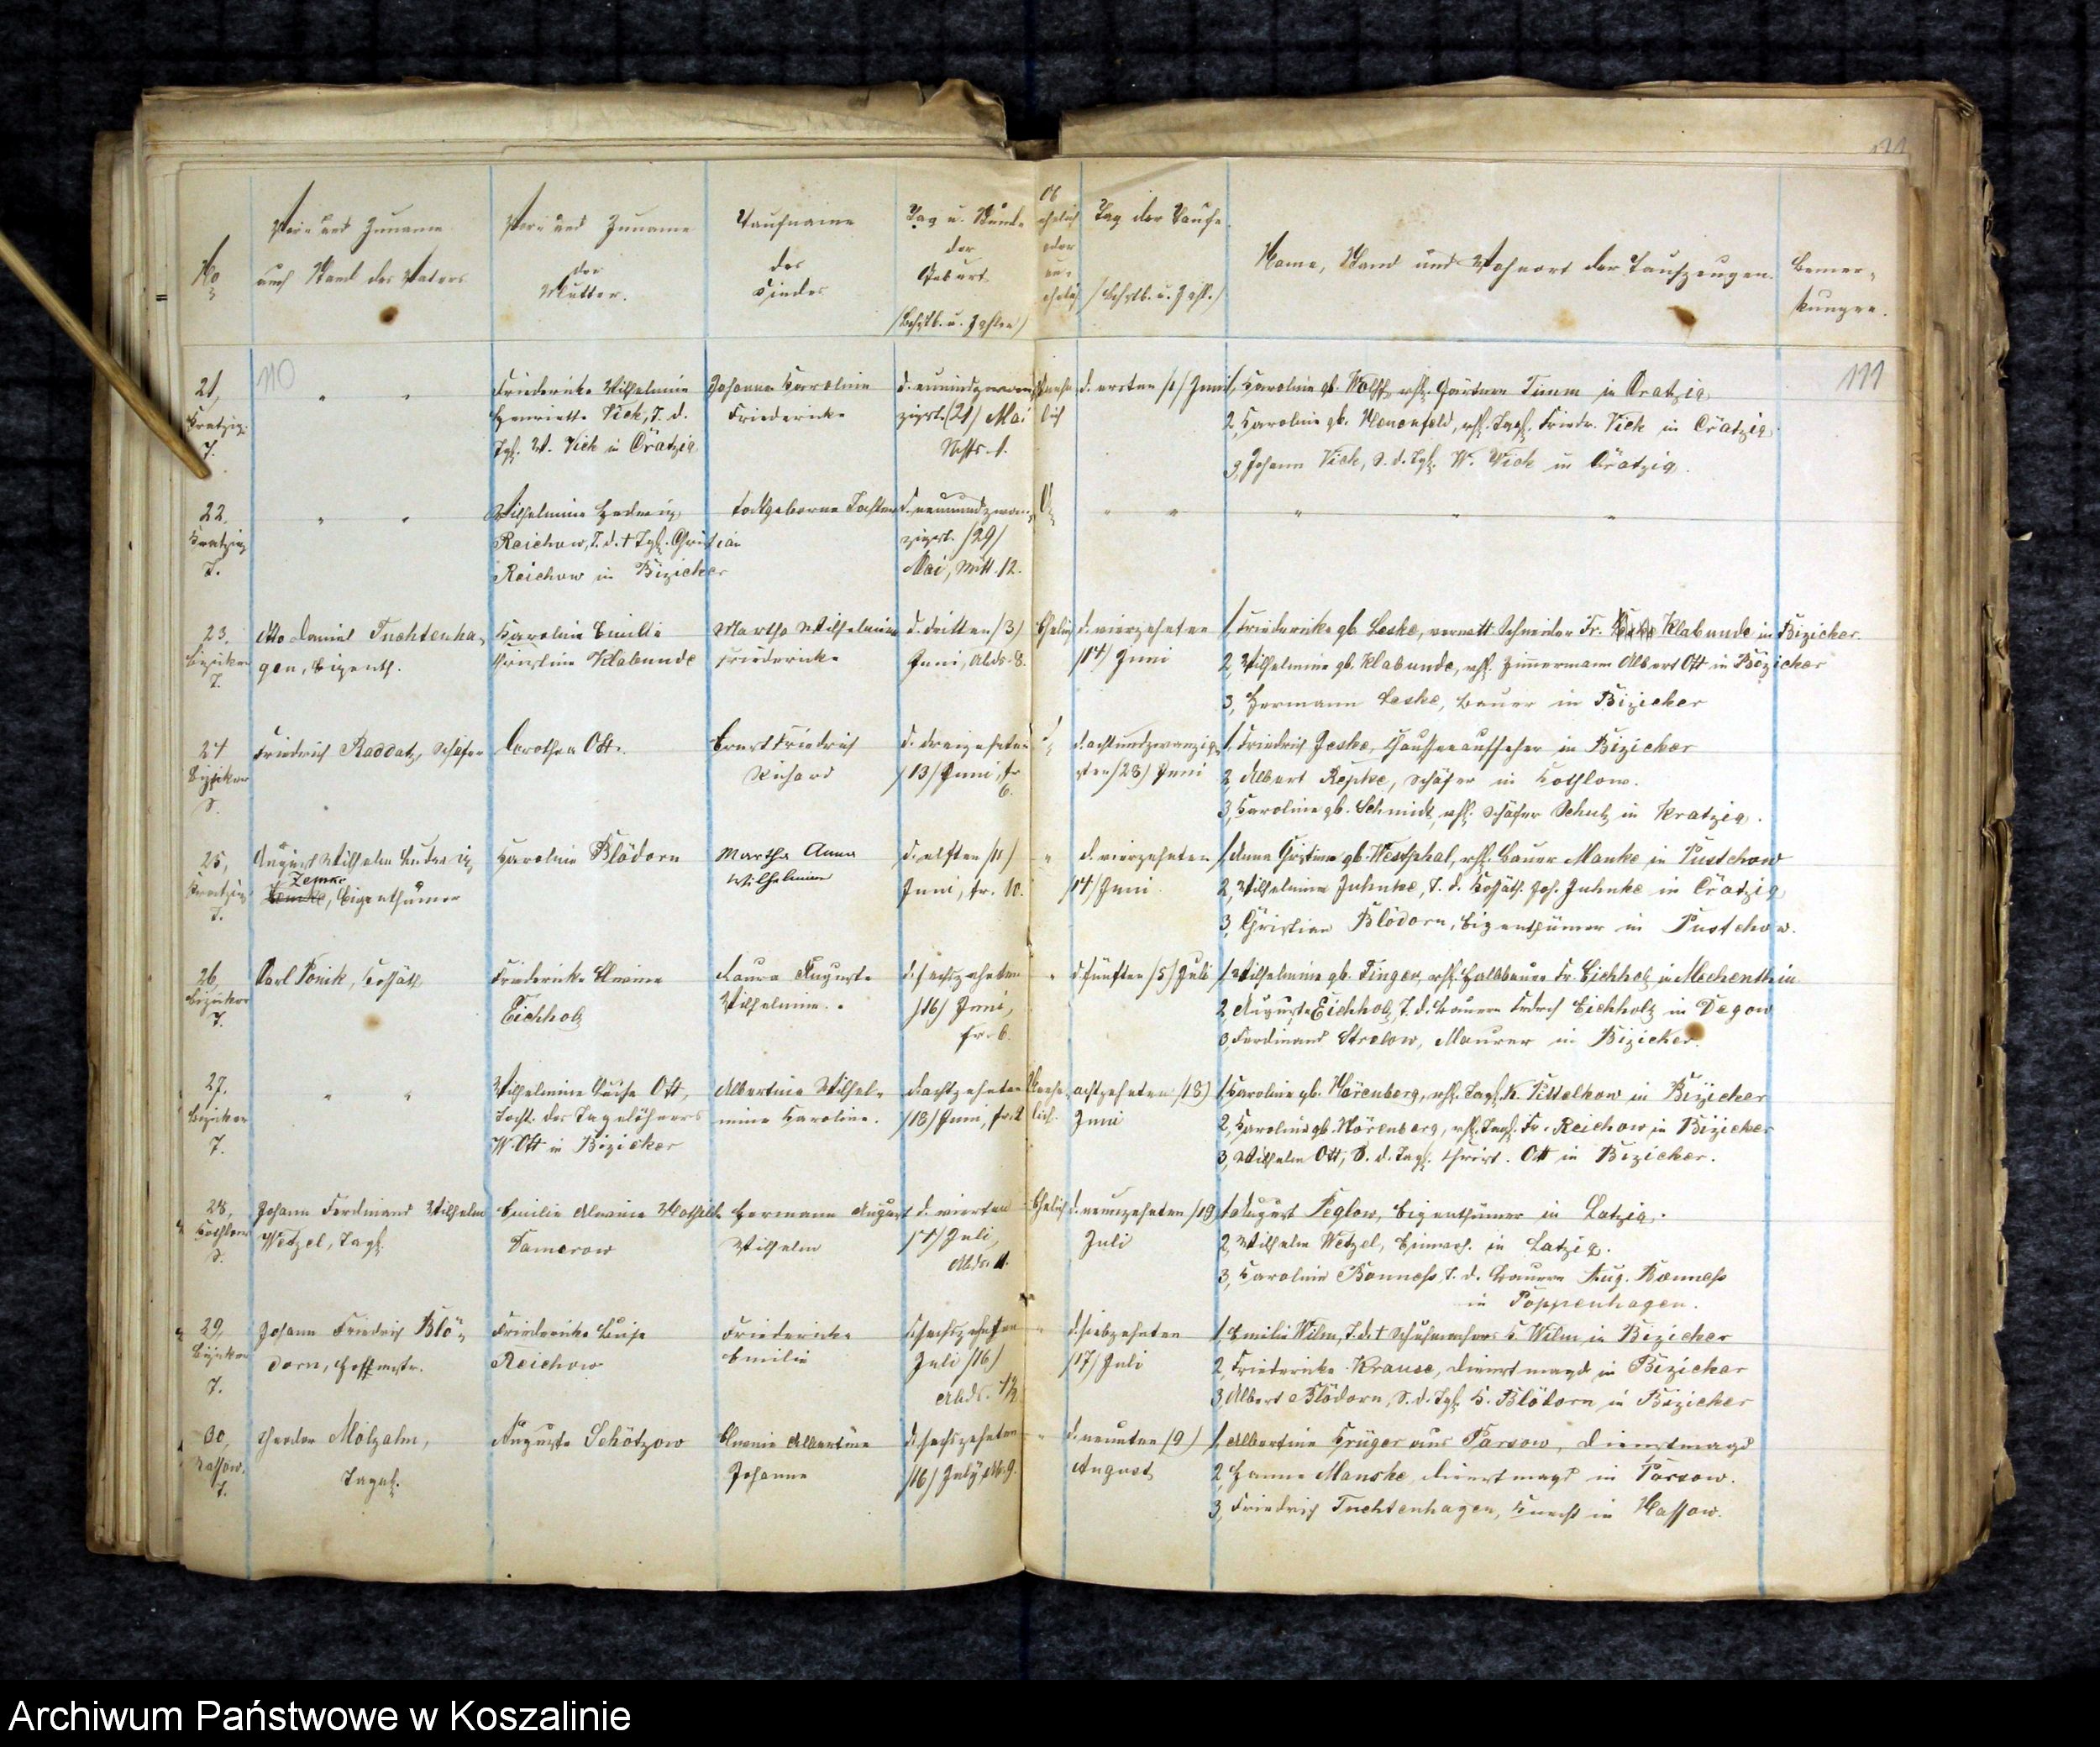 No
Vor- und Zuname
auch Stand des Vaters
Vor- und Zuname
der
Mutter.
Taufname
des
Kindes
Tag u. Stunde
der
Geburt
/Bchstb. u. Zahlen/
Ob
ehelich
oder
un-
ehelich
Tag der Taufe
/Bchstb. u. Zahl./
Name, Stand und Wohnort der Taufzeugen.
Bemer-
kungen.
110
111
21,
Kratzig.
T.
Friedericke Wilhelmine
Henriette Vick, T. d.
Tgl. W. Vick in Cratzig
Johanna Karoline
Friedericke
Mai
Uneh
lich
d. ersten /1/ Juni
1, Karoline gb. Wolff, Gärtner Timm in Cratzig
2, Karoline gb. Friedr. Vick in Cratzig.
3, Johann Vick, S. d. Tgl. W. Vick in Cratzig.
22,
Kratzig
T.
Wilhelmine Hedwig
Reichow, T. d. † Tgl. Christian
Reichow in Bizicker
todtgeborne Tochter
d. neunundzwan-
zigst. /29/
Mai, Mitt. 12.
23.
Bizicker
T.
Otto Daniel Tuchtenha-
gen, Eigenth.
Karoline Emilie
Christine Klabunde
Martha Wilhelmine
Friedericke
d. dritten /3/
Juni, Abds. 8.
Ehelich
d. vierzehnten
/14/ Juni
1, Friedericke gb. Leske, Schneider Fr. Klabunde in Bizicker.
2, Wilhelmine gb. Klabunde, Zimmermann Albert Ott in Bizicker
3, Hermann Leske, Bauer in Bizicker
24
Bizicker
S.
Friedrich Raddatz, Schäfer
Dorothea Ott.
Ernst Friedrich
Richard
d. dreizehnten
/13/ Juni, fr.
6.
d. achtundzwanzig-
sten /28/ Juni
1, Friedrich Jeske, Chausseeaufseher in Bizicker
2, Albert Repke, Schäfer in Kothlow.
3, Karoline gb. Schmidt, Schäfer Schulz in Kratzig.
25,
Kratzig
T.
August Wilhelm Ludwig
Zemke
Eigenthümer
Karoline Blödorn
Martha Anna
Wilhelmine
d. elften /11/
Juni, fr. 10.
d. vierzehnten
/14/ Juni
1, Anna Christine gb. Westphal, Bauer Manke in Pustchow
2, Wilhelmine Juhnke, T. d. Kossäth. Joh. Juhnke in Cratzig
3, Christian Blödorn, Eigenthümer in Pustchow.
26,
Bizicker
T.
Carl Ponik, Kossäth
Friedericke Alwine
Eichholz
Laura Auguste
Wilhelmine.
d. sechszehnten
/16/ Juni,
fr. 6.
d. fünften /5/ Juli
1, Wilhelmine gb. Finger, Halbbauer Fr. Eichholz in Mechenthin
2, Auguste Eichholz, T. d. Bauern Eichholz in Degow
3, Ferdinand Strelow, Maurer in Bizicker.
27.
Bizicker
T.
Wilhelmine Luise Ott,
Tocht. des Tagelöhners
W. Ott in Bizicker
Albertine Wilhel-
mine Karoline.
d. achtzehnten
/18/ Juni, fr. 2
Unehe-
lich.
achtzehnten /18/
Juni
1, Karoline gb. Hörenberg, Tagl. K. Pittelkow in Bizicker
2, Karoline gb. Hörenberg, Tagl. Fr. Reichow in Bizicker
3, Wilhelm Ott, S. d. Tagl. Christ. Ott in Bizicker.
28,
Kothlow
S.
Johann Ferdinand Wilhelm
Wetzel, Tagl.
Emilie Alwine Mathilde
Damerow
Hermann August
Wilhelm
d. vierten
/4/ Juli,
Abds. 11.
Ehelich
d. neunzehnten /19/
Juli
1, August Peglow, Eigenthümer in Latzig.
2, Wilhelm Wetzel, in Latzig.
3, Karoline Bonness, T. d. Bauern Aug. Bonness
in Poppenhagen.
29,
Bizicker
T.
Johann Friedrich Blö-
dorn, Hofmstr.
Friedericke Luise
Reichow
Friedericke
Emilie
d. sechszehnten
Juli /16/
Abds.
d. siebzehnten
/17/ Juli
1, Emilie Wilm, T. d. † Schuhmachers Wilm in Bizicker
2, Friedericke Krause, Dienstmagd in Bizicker
3, Albert Blödorn, S. d. Tgl. K. Blödorn in Bizicker
30,
Nassow.
T.
Theodor Molzahn,
Tagel.
Auguste Schötzow
Alwine Albertine
Johanne
d. sechszehnten
/16/ July, Ab. 9.
d. neunten /9/
August
1, Albertine Krüger aus Parsow, Dienstmagd
2, Hanne Manske, Dienstmagd in Parsow.
3, Friedrich Tuchtenhagen, Knecht in Nassow.
Archiwum Państwowe w Koszalinie